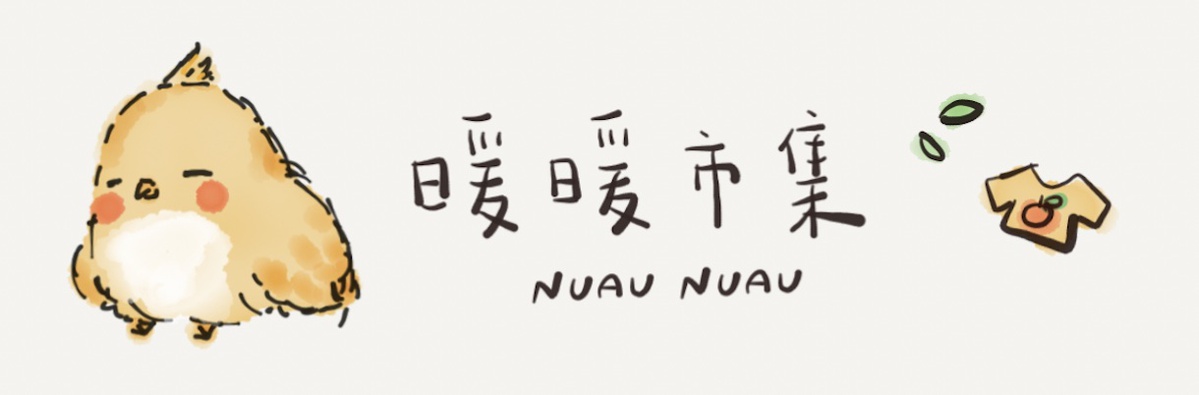 暖暖市集
NUAU NUAU